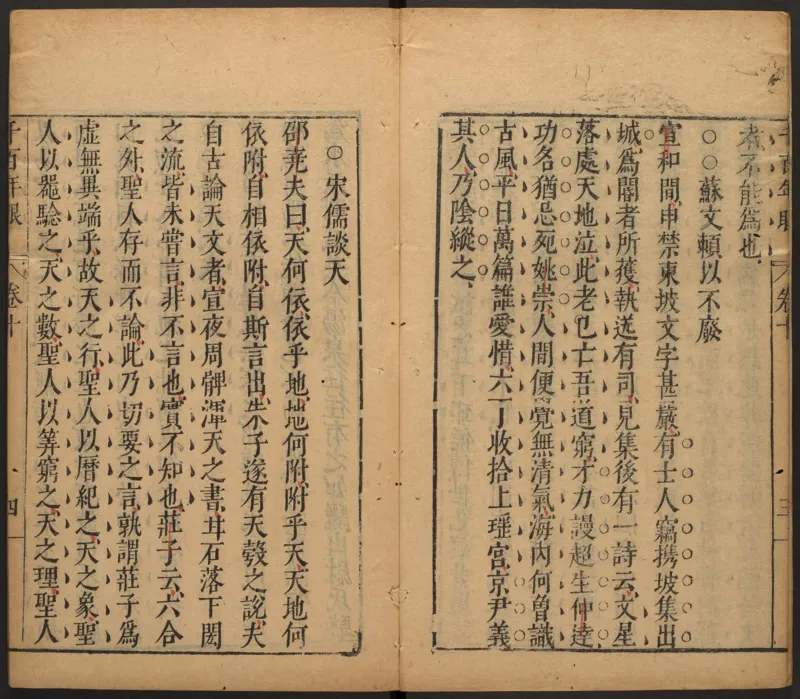 者不能爲也
○○蘇文賴以不廢
宣和間申禁東坡文字甚嚴有士人竊携坡集出
城爲閽者所獲執送有司見集後有一詩云文星
落處天地泣此老已亡吾道窮才力謾超生仲達
功名猶忌死姚崇人間便覺無清氣海内何曾識
古風平日萬篇誰愛惜六丁收拾上瑶宫京尹義
其人乃陰縱之
千百年眼
卷十
三
○宋儒談天
邵堯夫曰天何依依乎地地何附附乎天天地何
依附自相依附自斯言出朱子遂有天殼之說夫
自古論天文者宣夜周髀渾天之書甘石落下閎
之流皆未嘗言非不言也實不知也莊子云六合
之外聖人存而不論此乃切要之言孰謂莊子爲
虛無異端乎故天之行聖人以曆紀之天之象聖
人以器驗之天之數聖人以筭窮之天之理聖人
千百年眼
卷十
四